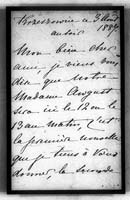 le 3 Août
au soir
Mon bien cher
ami je viens vous
dire que notre
Madame August
sera ici le 12 ou le
13 au matin, c'est
la première nouvelle
que je tiens à vous
donner, la seconde